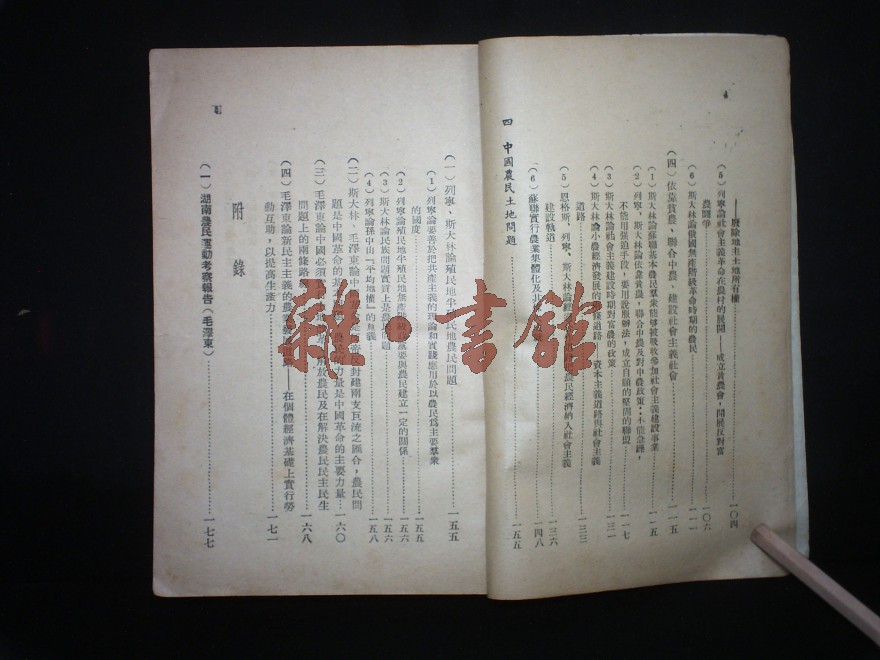 4
——廢除地主土地所有權……一〇四
(5) 列寧論社會主義革命在農村的展開——成立貧農會,開展反對富
農鬪爭……一〇六
(6) 斯大林論俄國無產階級革命時期的農民……一一一
(四) 依靠貧農、聯合中農、建設社會主義社會……一一五
(1) 斯大林論蘇聯基本農民羣衆能够被吸收參加社會主義建設事業……一一五
(2) 列寧、斯大林論依靠貧農,聯合中農及對中農政策:不能急躁,
不能用强迫手段,要用說服辦法,成立自願的堅固的聯盟……一一七
(3) 斯大林論社會主義建設時期對富農的政策……一三一
(4) 斯大林論小農經濟發展的道路——資本主義道路與社會主義
道路……一三三
(5) 恩格斯、列寧、斯大林論經 農民經濟納入社會主義
建設軌道……一三六
(6) 蘇聯實行農業集體化及……一四八
四 中國農民土地問題……一五五
(一) 列寧、斯大林論殖民地半殖民地農民問題……一五五
(1) 列寧論要善於把共產主義的理論和實踐應用於以農民爲主要羣衆
的國度……一五五
(2) 列寧論殖民地半殖民地無產階級政黨要與農民建立一定的關係……一五六
(3) 斯大林論民族問題實質上是農民問題……一五六
(4) 列寧論孫中山「平均地權」的意義……一五八
(二) 斯大林、毛澤東論中國 反對封建兩支巨流之匯合,農民問
題是中國革命的基 農民的力量是中國革命的主要力量……一六〇
(三) 毛澤東論中國必須 解放農民及在解決農民民主民生
問題上的兩條路線……一六八
(四) 毛澤東論新民主主義的農 ——在個體經濟基礎上實行勞
動互助,以提高生產力……一七一
附錄
(一) 湖南農民運動考察報告(毛澤東)……一七七
雜·書館